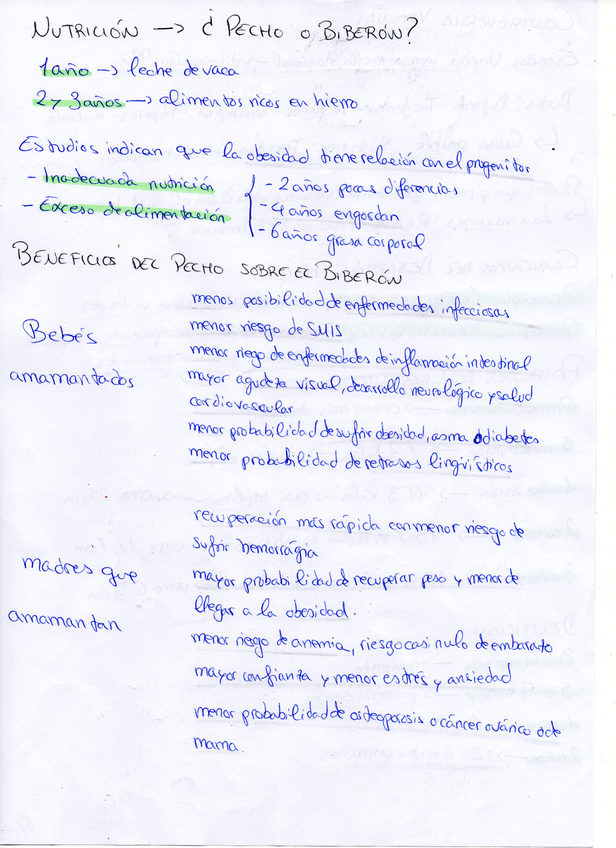 NUTRICIÓN —> ¿ PECHO O BIBERÓN?
1 año —> leche de vaca
2 y 3 años —> alimentos ricos en hierro
Estudios indican que la obesidad tiene relación con el progenitor
- Inadecuada nutrición
- Exceso de alimentación
- 2 años pocas diferencias
- 4 años engordan
- 6 años grasa corporal
BENEFICIOS DEL PECHO SOBRE EL BIBERÓN
Bebés
amamantados
menos posibilidad de enfermedades infecciosas
menor riesgo de SMIS
menor riego de enfermedades de inflamación intestinal
mayor agudeza visual, desarrollo neurológico y salud
cardiovascular
menor probabilidad de sufrir obesidad, asma o diabetes
menor probabilidad de retrasos lingüísticos
madres que
amamantan
recuperación más rápida con menor riesgo de
sufrir hemorragia
mayor probabilidad de recuperar peso y menor de
llegar a la obesidad.
menor riesgo de anemia, riesgo casi nulo de embarazo
mayor confianza y menor estrés y ansiedad
menor probabilidad de osteoporosis o cáncer ovárico o de
mama.